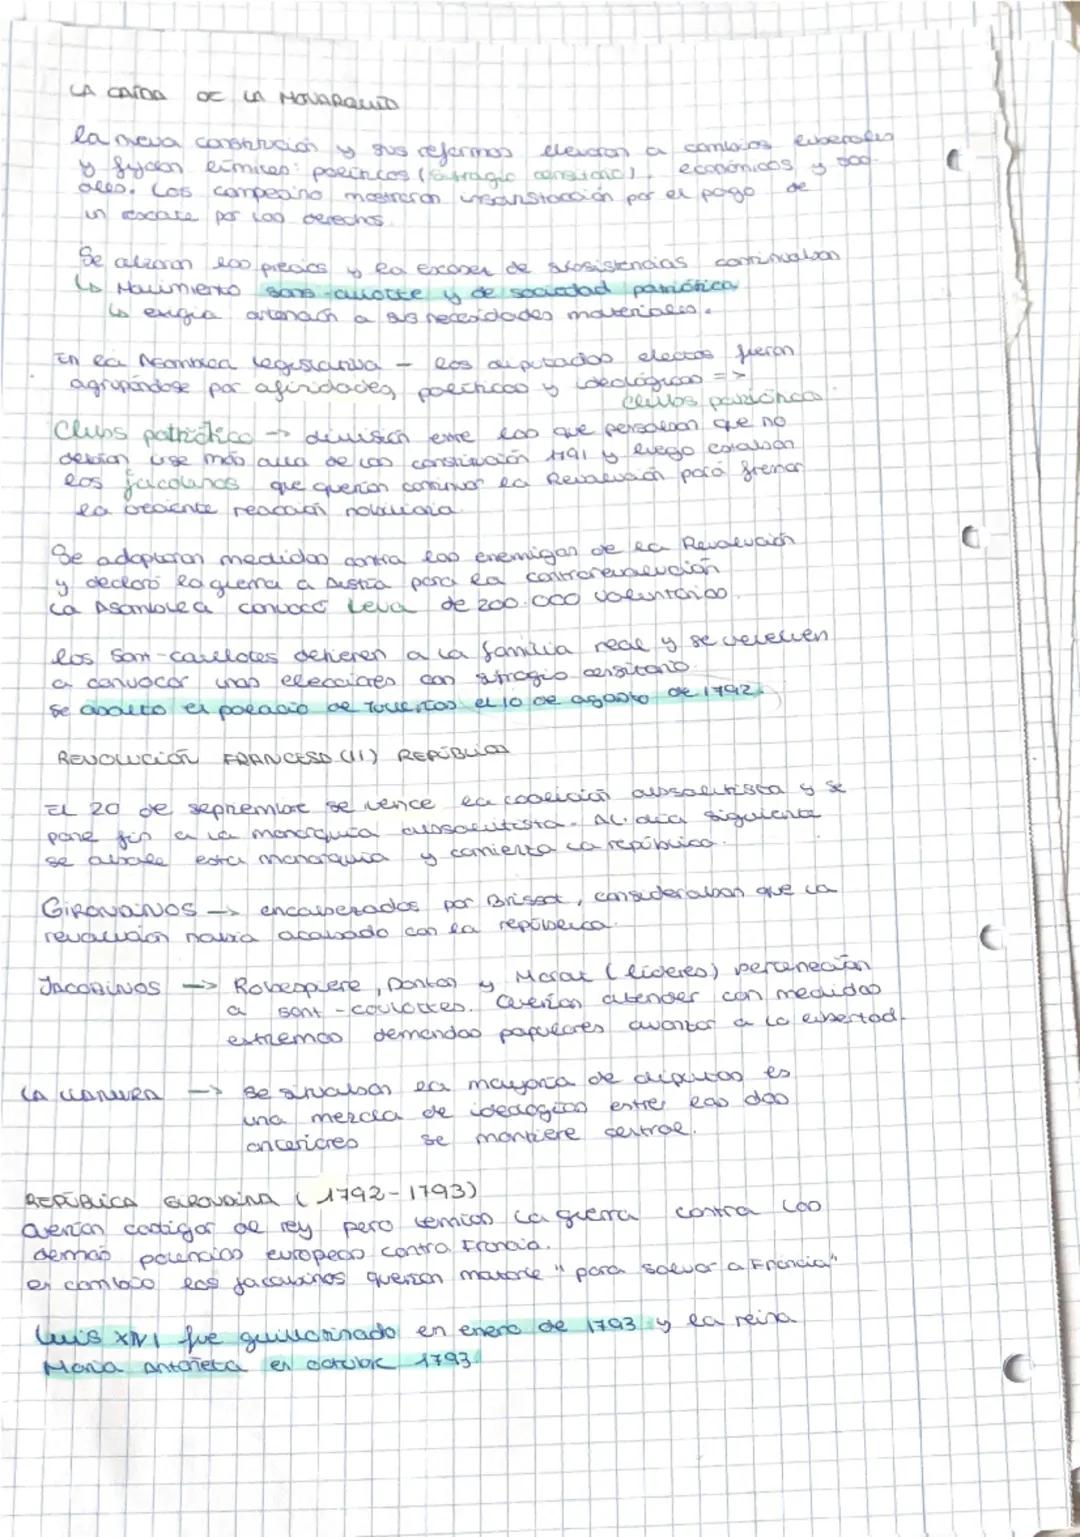 LA CAÍDA DE LA MONARQUÍA
la nueva constitución y sus reformas llevaron a cambios liberales
y fijaron límites: políticos (sufragio censitario), económicos y soci-
ales. Los campesino mostraron insatisfacción por el pago de
un rescate por los derechos.
Se alzaron los precios y la escasez de subsistencias continuaban
↳ Movimiento sans-culotte y de sociedad patriótica
↳ exigía atención a sus necesidades materiales.
En la Asamblea Legislativa - los diputados electos fueron
agrupándose por afinidades, políticas y ideológicas =>
clubs patrióticos
Clubs patriótico → división entre los que pensaban que no
debían irse más allá de la constitución 1791 y luego estaban
los jacobinos que querían continuar la Revolución para frenar
la creciente reacción nobiliaria.
Se adoptaron medidas contra los enemigos de la Revolución
y declaró la guerra a Austria para la contrarevolución
La Asamblea convocó Leva de 200.000 voluntarios.
los sant-coulotes detienen a la familia real y se vuelven
a convocar unas elecciones con sufragio censitario
se asaltó el palacio de Tullerías el 10 de agosto de 1792.
REVOLUCIÓN FRANCESA (II) REPÚBLICA
El 20 de septiembre se vence la coalición absolutista y se
pone fin a la monarquía absolutista. Al día siguiente
se abole esta monarquía y comienza la república.
GIRONDINOS → encabezados por Brissot, consideraban que la
revolución había acabado con la república.
JACOBINOS → Robespiere, Danton y Marat (líderes) pertenecían
a sant-coulottes. Querían atender con medidas
extremas demandas populares avanzar a la libertad.
LA LLANURA → se situaban la mayoría de diputados es
una mezcla de ideologías entre las dos
anteriores se mantiene central.
REPÚBLICA GIRONDINA (1792-1793)
Querían castigar de rey pero temían la guerra contra las
demás potencias europeas contra Francia.
en cambio los jacobinos querían matarle "para salvar a Francia"
Luis XVI fue guillotinado en enero de 1793 y la reina
María Antoñeta en octubre 1793.